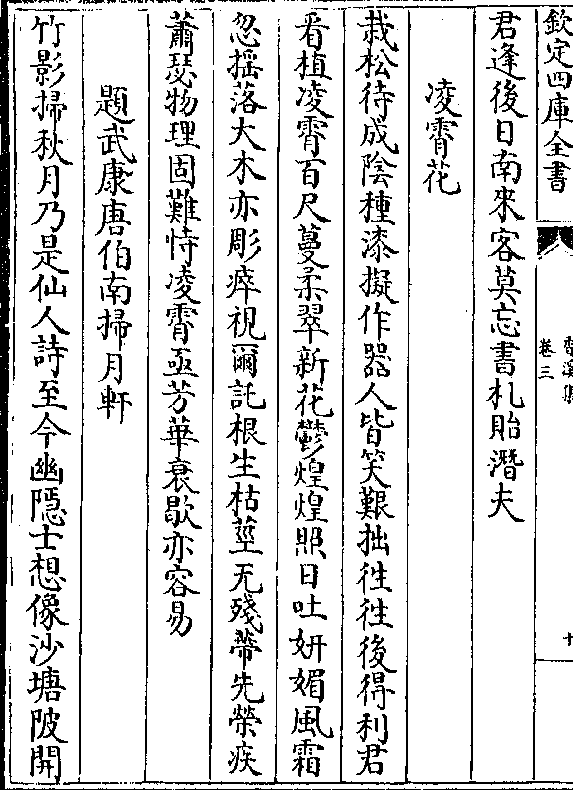 欽定四庫全書
卷三
君逢後日南來客莫忘書札貽潛夫
凌霄花
栽松待成陰種漆擬作器人皆笑艱拙徃徃後得利君
看植凌霄百尺蔓柔翠新花鬱煌煌照日吐妍媚風霜
忽揺落大木亦彫瘁視爾託根生枯莖无殘蔕先榮疾
蕭瑟物理固難恃凌霄亟芳華衰歇亦容易
題武康唐伯南掃月軒
竹影掃秋月乃是仙人詩至今幽隠士想像沙塘陂開